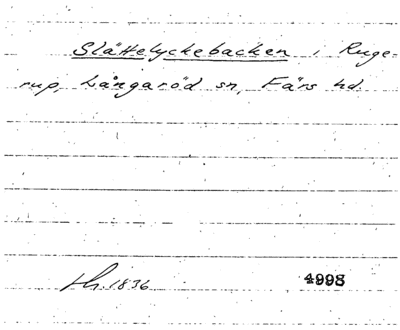 Slättelyckebacken i Ruge-
rup, Långaröd sn, Färs hd.
Lh. 1836 4998